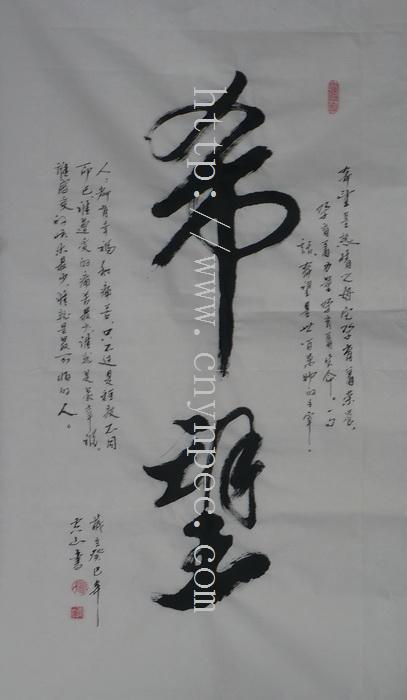 希望是热情之母它孕育着荣誉，
孕育着力量孕育着生命。一句
话，希望是世间万物的主宰。
希望
人人都有幸福和痛苦，只不过是程度不同
而已，谁遭受的痛苦最少，谁就是最幸福，
谁感受的快乐最少，谁就是最可怜的人。
癸巳年
山书
http://www.cnympec.com